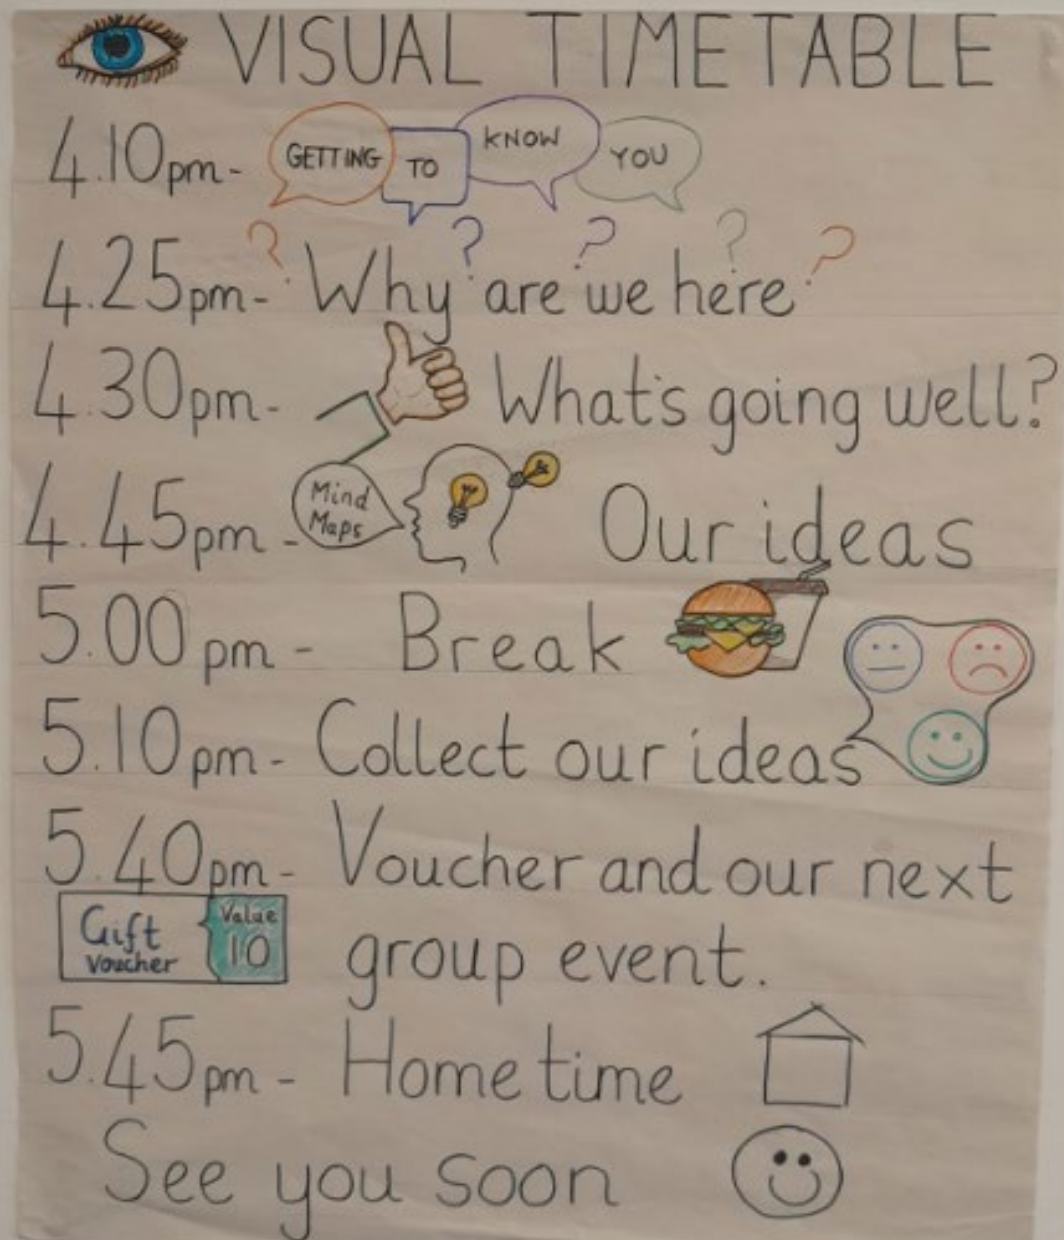 VISUAL TIMETABLE
4.10pm- GETTING TO KNOW YOU
? ? ? ? ?
4.25pm- Why are we here
4.30pm- What's going well?
4.45pm- Mind Maps Our ideas
5.00pm- Break
5.10pm- Collect our ideas
5.40pm- Voucher and our next
Gift Voucher Value 10
group event.
5.45pm- Home time
See you soon